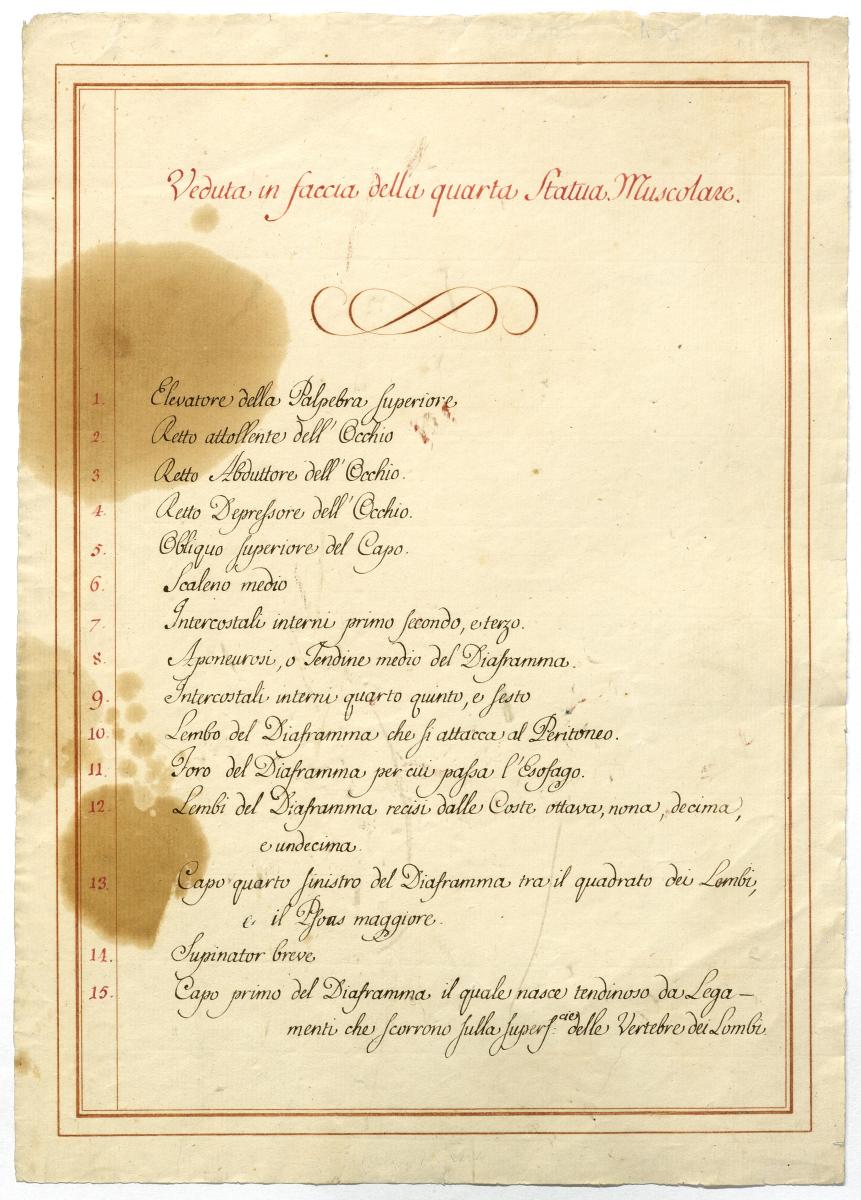 Veduta in faccia della quarta Statua Muscolare.
1. Elevatore della Palpebra superiore
2. Retto attollente dell' Occhio
3. Retto Abduttore dell' Occhio.
4. Retto Depressore dell' Occhio.
5. Obliquo superiore del Capo.
6. Scaleno medio
7. Intercostali interni primo secondo, e terzo.
8. Aponeurosi, o Tendine medio del Diaframma.
9. Intercostali interni quarto quinto, e sesto
10. Lembo del Diaframma che si attacca al Peritoneo.
11. Foro del Diaframma per cui passa l'Esofago.
12. Lembi del Diaframma recisi dalle Coste ottava, nona, decima,
e undecima.
13. Capo quarto sinistro del Diaframma tra il quadrato dei Lombi,
e il Psoas maggiore.
14. Supinator breve
15. Capo primo del Diaframma il quale nasce tendinoso da Lega-
menti che scorrono sulla superf:cie delle Vertebre dei Lombi